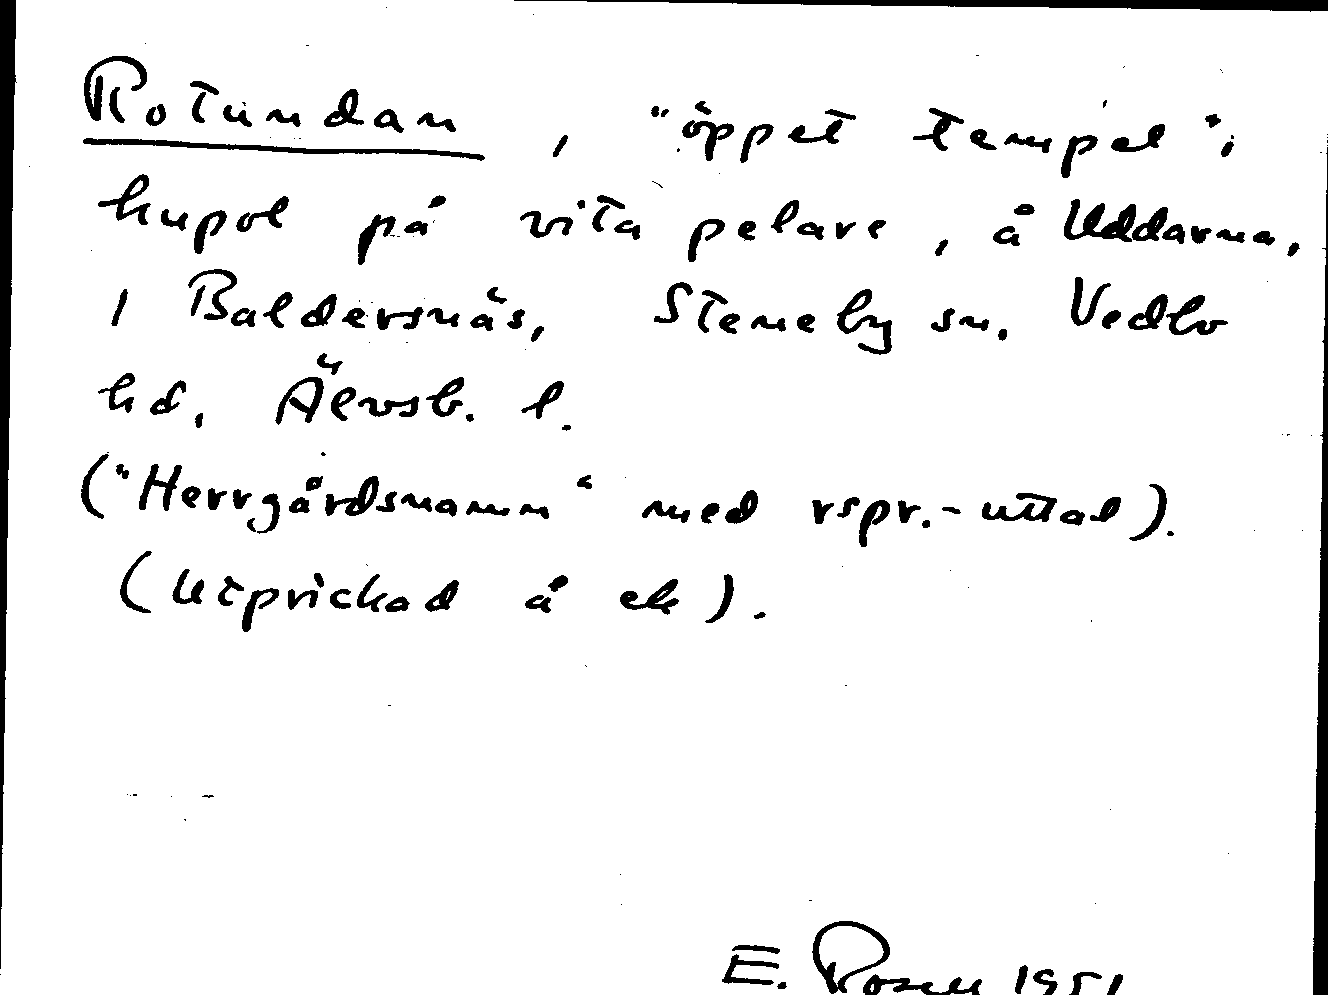 Rotundan, "öppet tempel";
kupol på vita pelare, å Uddarna,
1 Baldersnäs, Steneby sn. Vedbo
hd, Älvsb. l.
("Herrgårdsnamn" med rspr.-uttal).
(Utprickad å ek).
E. Rosen 1951